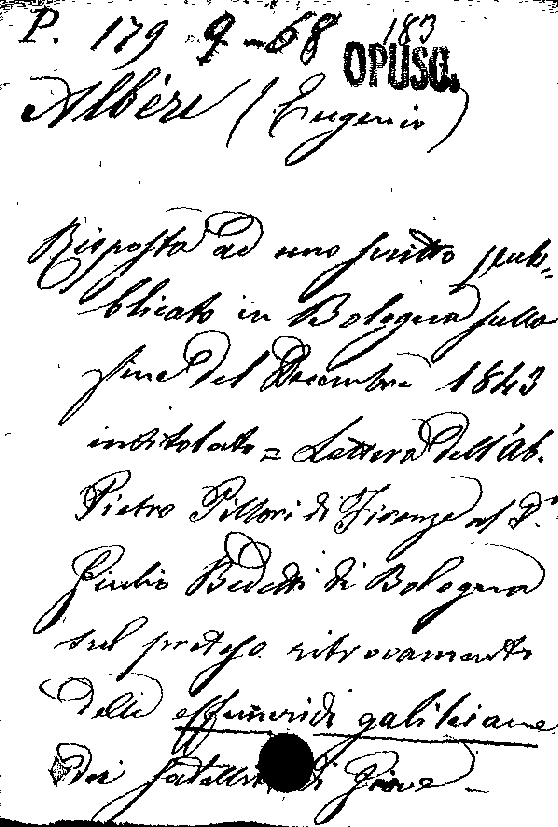 P. 179 9-68 183
OPUSC.
Albèri (Eugenio)
Risposta ad uno scritto pub-
blicato in Bologna sulla
fine del Decembre 1843
intitolato = Lettera dell'Ab.
Pietro Pillori di Firenze al D.r
Giulio Bedetti di Bologna
sul preteso ritrovamento
delle effemeridi galileiane
dei satelliti di Giove -